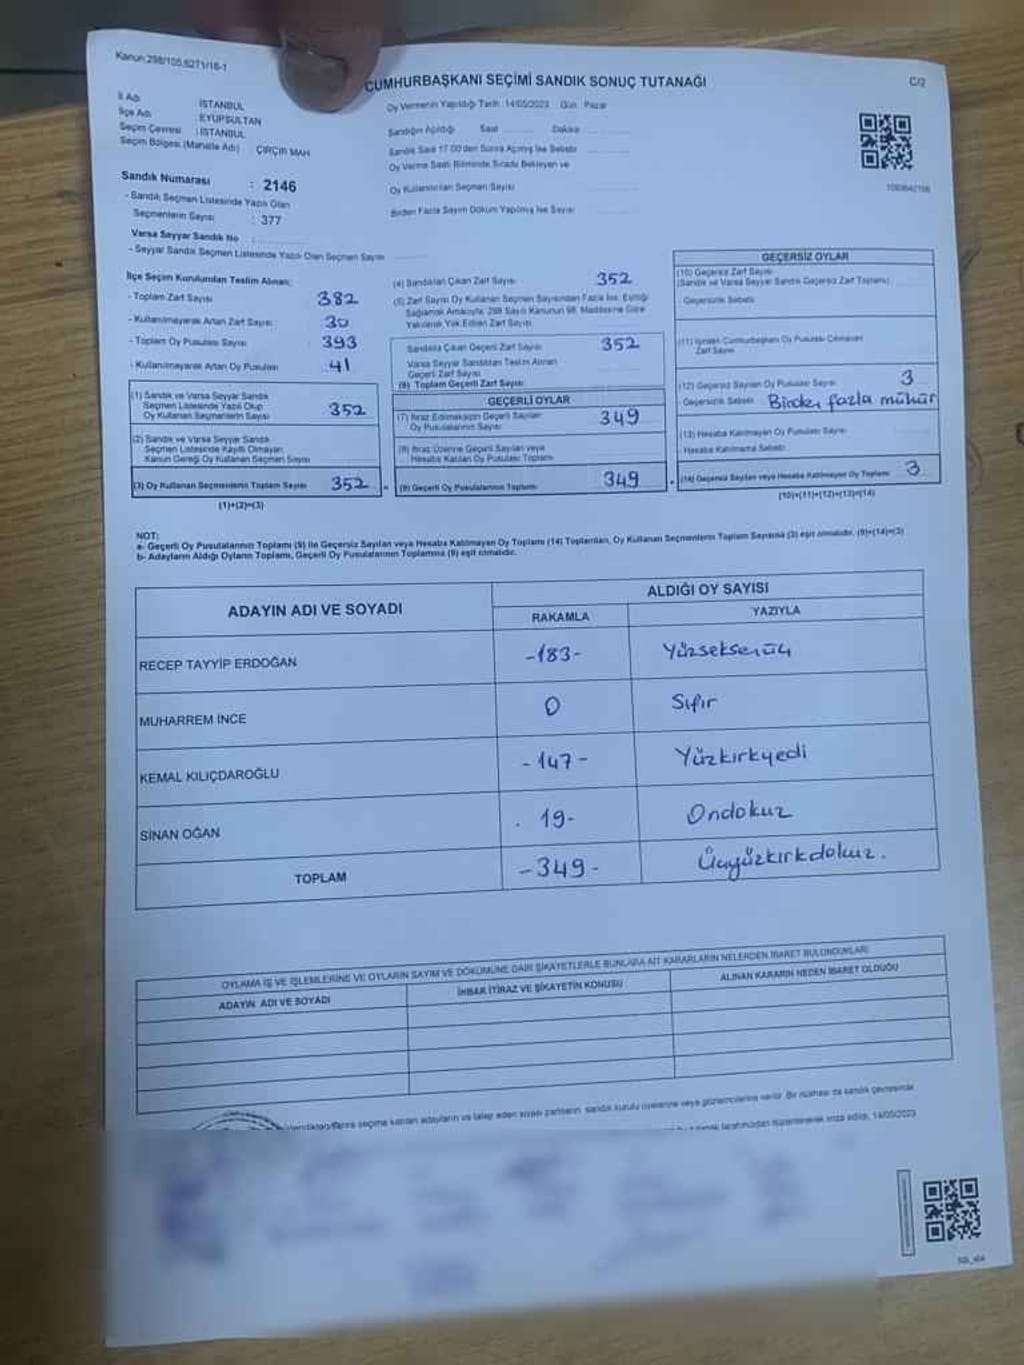 Kanun:298/105,6271/16-1
CUMHURBAŞKANI SEÇİMİ SANDIK SONUÇ TUTANAĞI
C/2
İl Adı : İSTANBUL
İlçe Adı : EYÜPSULTAN
Seçim Çevresi : İSTANBUL
Seçim Bölgesi (Mahalle Adı) ÇIRÇIR MAH
Sandık Numarası : 2146
- Sandık Seçmen Listesinde Yazılı Olan
Seçmenlerin Sayısı : 377
Varsa Seyyar Sandık No :
- Seyyar Sandık Seçmen Listesinde Yazılı Olan Seçmen Sayısı
Oy Vermenin Yapıldığı Tarih : 14/05/2023 Gün : Pazar
Sandığın Açıldığı Saat Dakika
Sandık Saat 17.00'den Sonra Açılmış İse Sebebi
Oy Verme Saati Bitiminde Sırada Bekleyen ve
Oy Kullandırılan Seçmen Sayısı
Birden Fazla Sayım Döküm Yapılmış İse Sayısı
İlçe Seçim Kurulundan Teslim Alınan:
- Toplam Zarf Sayısı 382
- Kullanılmayarak Artan Zarf Sayısı 30
- Toplam Oy Pusulası Sayısı 393
- Kullanılmayarak Artan Oy Pusulası 41
(1) Sandık ve Varsa Seyyar Sandık
Seçmen Listesinde Yazılı Olup
Oy Kullanan Seçmenlerin Sayısı 352
(2) Sandık ve Varsa Seyyar Sandık
Seçmen Listesinde Kayıtlı Olmayan
Kanun Gereği Oy Kullanan Seçmen Sayısı
(3) Oy Kullanan Seçmenlerin Toplam Sayısı 352
(1)+(2)=(3)
(4) Sandıktan Çıkan Zarf Sayısı 352
(5) Zarf Sayısı Oy Kullanan Seçmen Sayısından Fazla İse, Eşitliği
Sağlamak Amacıyla, 298 Sayılı Kanunun 98. Maddesine Göre
Yakılarak Yok Edilen Zarf Sayısı
Sandıkta Çıkan Geçerli Zarf Sayısı 352
Varsa Seyyar Sandıktan Teslim Alınan
Geçerli Zarf Sayısı
(6) Toplam Geçerli Zarf Sayısı
GEÇERLİ OYLAR
(7) İtiraz Edilmeksizin Geçerli Sayılan
Oy Pusulalarının Sayısı 349
(8) İtiraz Üzerine Geçerli Sayılan veya
Hesaba Katılan Oy Pusulası Toplamı
(9) Geçerli Oy Pusulalarının Toplamı 349
GEÇERSİZ OYLAR
(10) Geçersiz Zarf Sayısı
(Sandık ve Varsa Seyyar Sandık Geçersiz Zarf Toplamı)
Geçersizlik Sebebi
(11) İçinden Cumhurbaşkanı Oy Pusulası Çıkmayan
Zarf Sayısı
(12) Geçersiz Sayılan Oy Pusulası Sayısı 3
Geçersizlik Sebebi Birden fazla mühür
(13) Hesaba Katılmayan Oy Pusulası Sayısı
Hesaba Katılmama Sebebi
(14) Geçersiz Sayılan veya Hesaba Katılmayan Oy Toplamı 3
(10)+(11)+(12)+(13)=(14)
NOT:
a- Geçerli Oy Pusulalarının Toplamı (9) ile Geçersiz Sayılan veya Hesaba Katılmayan Oy Toplamı (14) Toplamları, Oy Kullanan Seçmenlerin Toplam Sayısına (3) eşit olmalıdır. (9)+(14)=(3)
b- Adayların Aldığı Oyların Toplamı, Geçerli Oy Pusulalarının Toplamına (9) eşit olmalıdır.
ADAYIN ADI VE SOYADI
ALDIĞI OY SAYISI
RAKAMLA YAZIYLA
RECEP TAYYİP ERDOĞAN -183- Yüzseksenüç
MUHARREM İNCE 0 Sıfır
KEMAL KILIÇDAROĞLU -147- Yüzkırkyedi
SİNAN OĞAN 19- Ondokuz
TOPLAM -349- Üçyüzkırkdokuz.
OYLAMA İŞ VE İŞLEMLERİNE VE OYLARIN SAYIM VE DÖKÜMÜNE DAİR ŞİKAYETLERLE BUNLARA AİT KARARLARIN NELERDEN İBARET BULUNDUKLARI
ADAYIN ADI VE SOYADI
İHBAR İTİRAZ VE ŞİKAYETİN KONUSU
ALINAN KARARIN NEDEN İBARET OLDUĞU
seçime katılan adayların ve talep eden siyasi partilerin sandık kurulu üyelerine veya gözlemcilerine verilir. Bir nüshası da sandık çevresinde
tarafımızdan düzenlenerek imza edildi. 14/05/2023